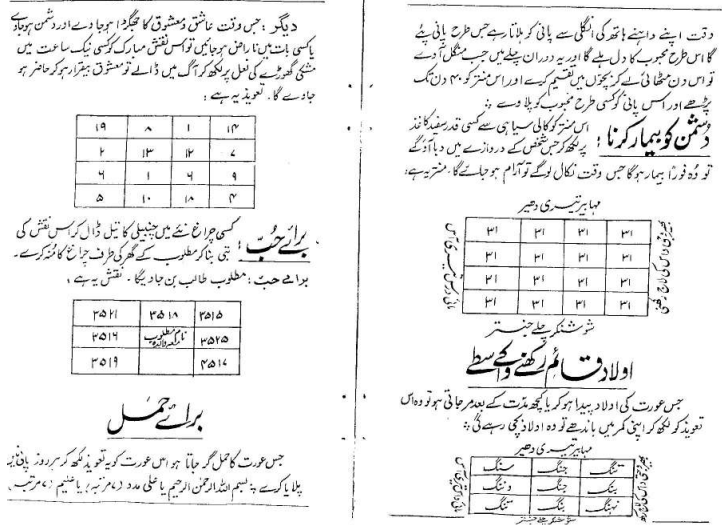 وقت اپنے داہنے ہاتھ کی انگلی سے پانی کو ہلاتا ہے جس طرح پانی ہلے
گا اس طرح محبوب کا دل ہلے گا اور یہ دوران چلے میں جب منگل آوے
تو اس دن مٹھائی لے کر بچوں میں تقسیم کرے اور اس منتر کو ۴۰ دن تک
پڑھے اور اس پانی کو کسی طرح محبوب کو پلا وے
دشمن کو بیمار کرنا : اس منتر کو کالی سیاہی سے کسی قدر سفید کاغذ
پر لکھ کر جس شخص کے دروازے میں دبا آؤ گے
تو وہ فوراً بیمار ہوگا جس وقت نکال لو گے تو آرام ہو جائے گا۔ منتر یہ ہے:
مہابیر تیری دھیر
۳۱ ۳۱ ۳۱ ۳۱
۳۱ ۳۱ ۳۱ ۳۱
۳۱ ۳۱ ۳۱ ۳۱
۳۱ ۳۱ ۳۱ ۳۱
شوشنکر چلے جنتر
اولاد قائم رکھنے کے واسطے
جس عورت کی اولاد پیدا ہو کر یا کچھ مدت کے بعد مر جاتی ہو تو وہ اس
تعویذ کو لکھ کر اپنی کمر میں باندھے تو وہ اولاد بچی رہے گی
مہابیر تیری دھیر
تنگ جنگ سنگ
بنک جنگ دننگ
نہنگ بنگ تننگ
شوشنکر چلے جنتر
دیگر : جس وقت عاشق و معشوق کا جھگڑا ہو جاوے اور دشمن ہو جاوے
یا کسی بات میں ناراض ہو جائیں تو اس نقش مبارک کو کسی نیک ساعت میں
مشکی گھوڑے کی نعل پر لکھ کر آگ میں ڈالے تو معشوق بیقرار ہو کر حاضر ہو
جاوے گا۔ تعویذ یہ ہے :
۱۹ ۸ ۱ ۱۴
۲ ۱۳ ۱۲ ۷
۶ ۱ ۶ ۹
۵ ۱۰ ۱۸ ۴
برائے حُبّ : کسی چراغ نئے میں چنبیلی کا تیل ڈال کر اس نقش کی
بتی بنا کر مطلوب کے گھر کی طرف چراغ کا منہ کرے۔
برائے حب : مطلوب طالب بن جاویگا۔ نقش یہ ہے :
۳۵۲۱ ۳۵۱۸ ۳۵۱۵
۳۵۱۶ نام مطلوب ۳۵۲۵
۳۵۱۹ ۳۵۱۷
برائے حمل
جس عورت کا حمل گر جاتا ہو اس عورت کو یہ تعویذ لکھ کر ہر روز پانی میں
پلایا کرے بسم اللہ الرحمن الرحیم یا علی مدد (۷ مرتبہ) یا علیم (۷ مرتبہ)